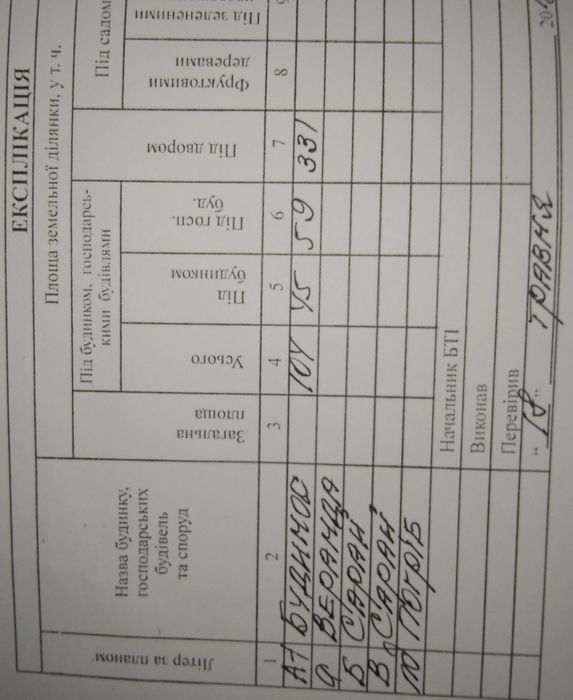 ЕКСПЛІКАЦІЯ
Літер за планом
Назва будинку,
господарських
будівель
та споруд
Площа земельної ділянки, у т. ч.
Загальна
площа
Під будинком, господарсь-
кими будівлями
Усього
Під
будинком
Під госп.
буд.
Під двором
Під садом
Фруктовими
деревами
Під зеленими
1 2 3 4 5 6 7 8
А1 БУДИНОК 104 45 59 331
а ВЕРАНДА
Б САРАЙ
В САРАЙ
ПОГРІБ
Начальник БТІ
Виконав
Перевірив
" 18 " ТРАВНЯ 20